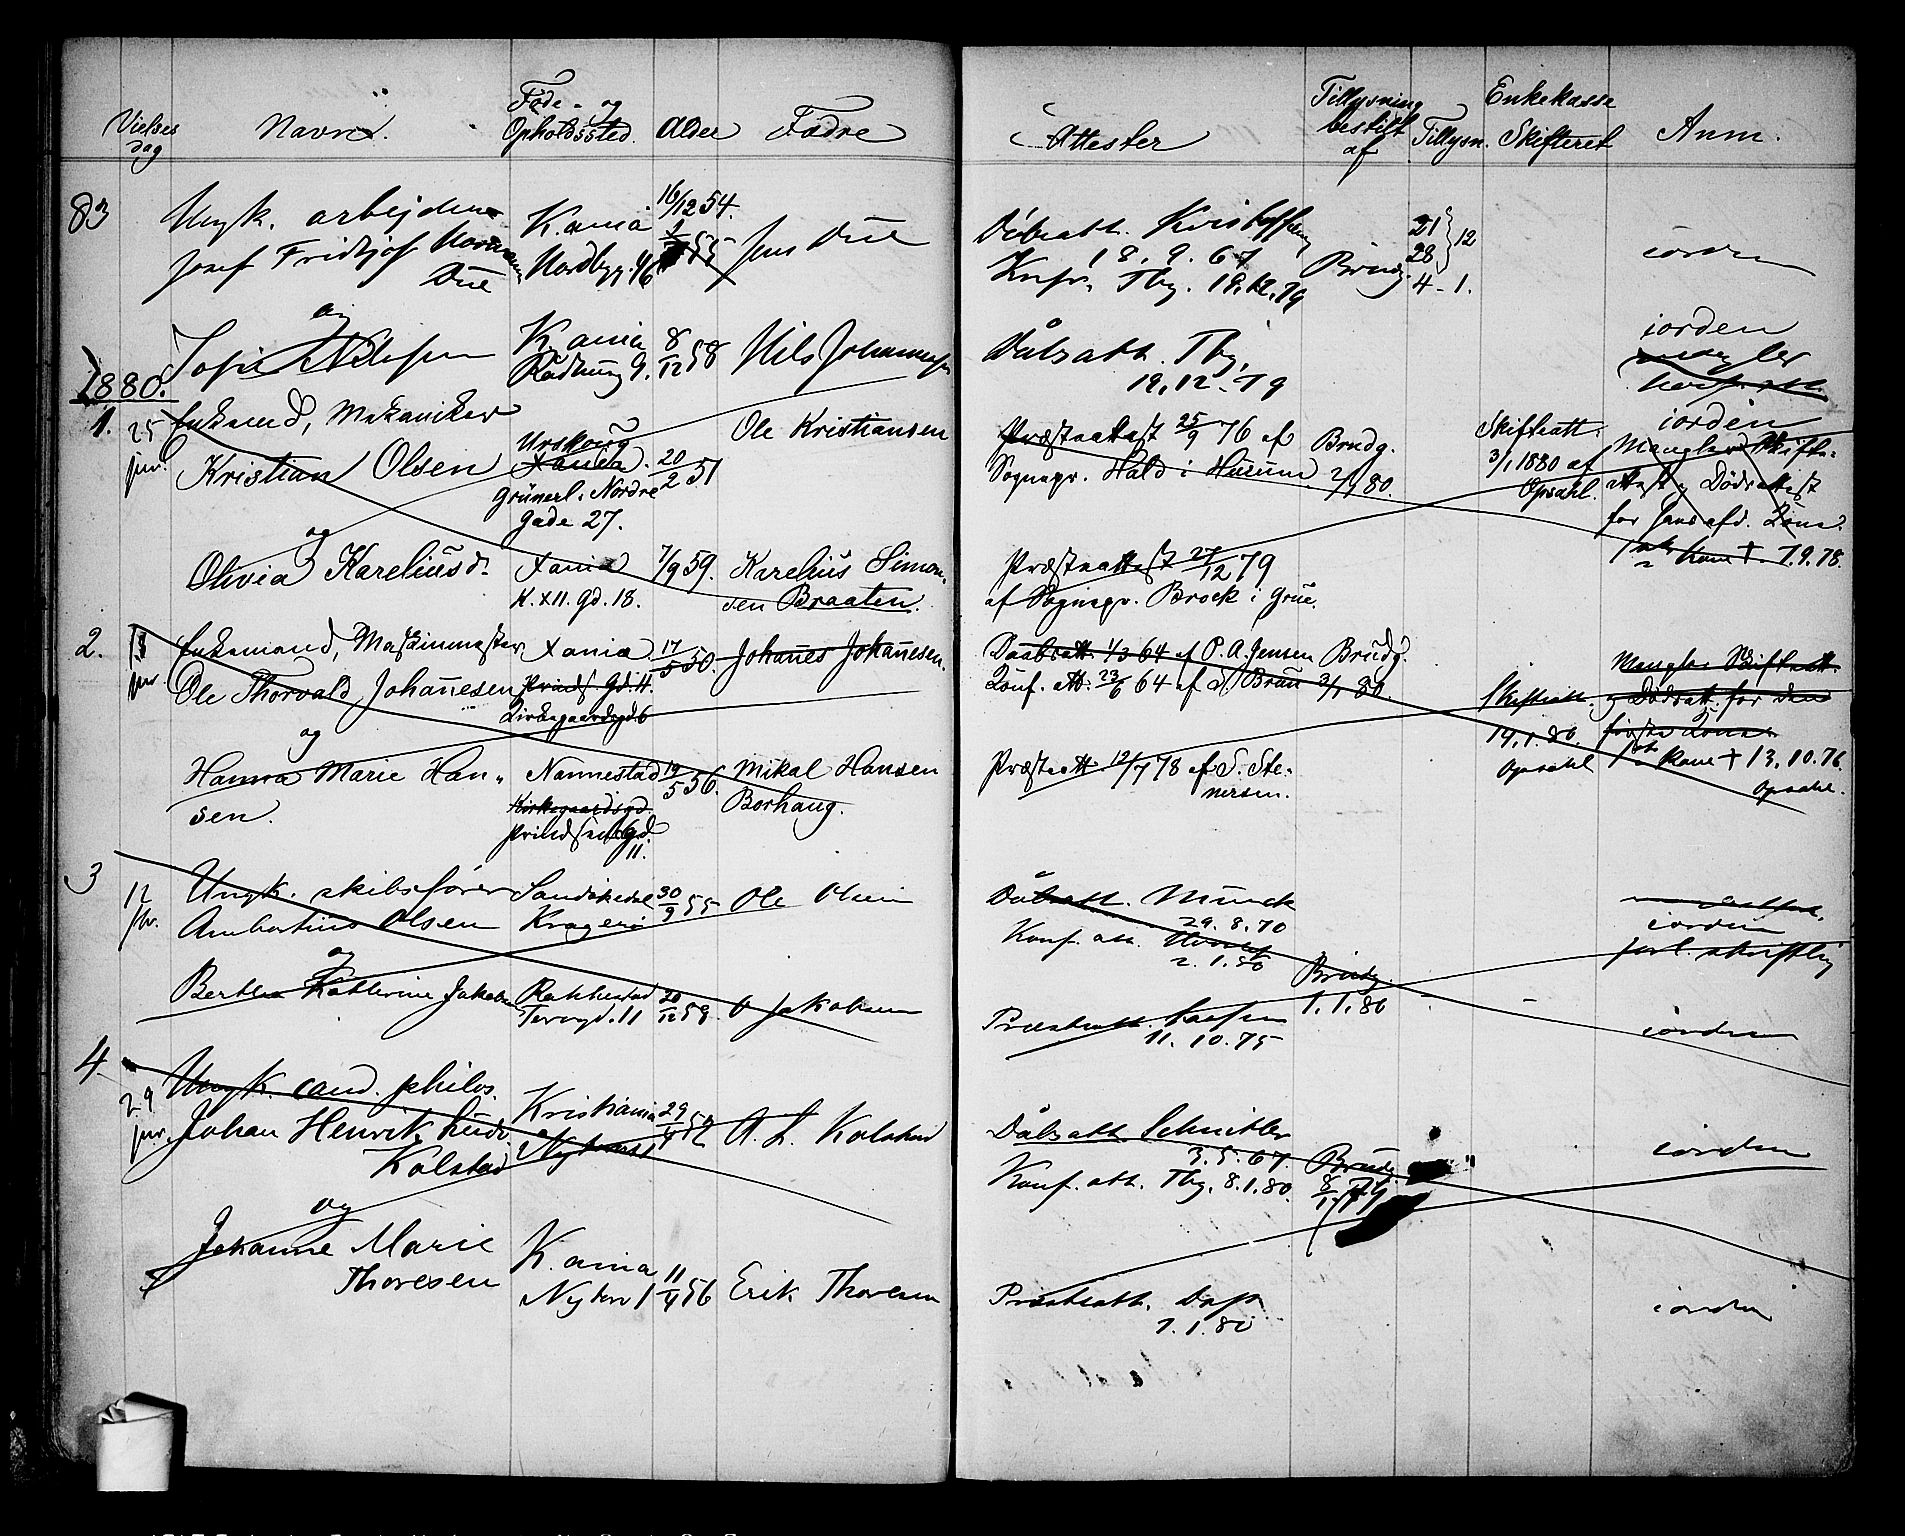 Vielses dag
Navne.
Føde- og Opholdssted.
Alder
Fædre
Attester
Tillysning bestilt af
Tillysn.
Enkekasse Skifteret
Anm.
83
Ungk. arbejder
Josef Fridtjof
Due
K.ania
Nordbyg. 46
16/12 54.
Jens Due
Dåbsatt.
18. 9. 67
Knfr. Tbg. 18.12.79
Brudg.
21 } 12
28
4 - 1.
iorden
og
Sofie Nilsen
K.ania
Rådhusg 9.
8/12 58
Nils Johannesen
Dåbsatt. Tbg.
19.12.79
iorden
1880.
1.
25 jnr.
Enkemand, Mekaniker
Kristian Olsen
Urskoug
Xania.
Grünerl. Nordre
gade 27.
20/2 51
Ole Kristiansen
Præsteattest 25/9 76 af
Sognepr. Hald i Husum
Brudg.
2/1 80.
Skifteatt.
3/1 1880 af
Opsahl.
iorden
Mangler Skifte-
attest og Dødsattest
for hans afd. Kone.
Kone † 7.9.78.
og
Olivia Kareliusd.
Xania
K. XII. gd. 18.
7/9 59.
Karelius Simon-
sen Braaten.
Præsteattest 27/12 79
af Sognepr. Brock i Grue.
2.
18 jnr.
Enkemand, Maskinmester
Ole Thorvald Johannesen
Xania
Prinds gd. 11.
Kirkegaardsgd. 6
17/5 50.
Johannes Johannesen.
Daabsatt. 1/3 64 af P. A. Jensen
Konf. att. 23/6 64 af d. Brun
Brudg.
3/1 80.
Skifteatt.
19.1.80.
Opsahl
Mangler Skifteatt.
og Dødsatt. for den
første Kone
Kone † 13.10.76
Opsahl.
og
Hanna Marie Han-
sen.
Nannestad
Kirkegaardsgd.
Prindsens gd.
11.
19/5 56.
Mikal Hansen
Borhaug.
Præsteatt. 12/7 78 af S. Ste-
nersen.
3
12
Ungk. skibsfører
Ambortius Olsen
Sandøkedal
Kragerø
30/9 55
Ole Olsen
Dåbsatt. Munck
29. 8. 70
Konf. att.
2.1.80
Brudg.
1.1.80
iorden
forl. skriftlig
og
Berthea Katherine Jakobsen
Rakkestad
Torvgd. 11
20/12 59.
O Jakobsen
Præsteatt.
11. 10. 75
iorden
4
29 jnr.
Ungk. cand. philos.
Johan Henrik Ludv.
Kolstad
Kristiania
29/4 52
A. L. Kolstad
Dåbsatt. Schnitler
3. 5. 67.
Konf. att. Tbg. 8.1.80.
Brudg.
8/1 79
iorden
og
Johanne Marie
Thoresen
K.ania
Nytorv 1
11/4 56
Erik Thoresen
Præsteatt. Dop
7.1.80
iorden